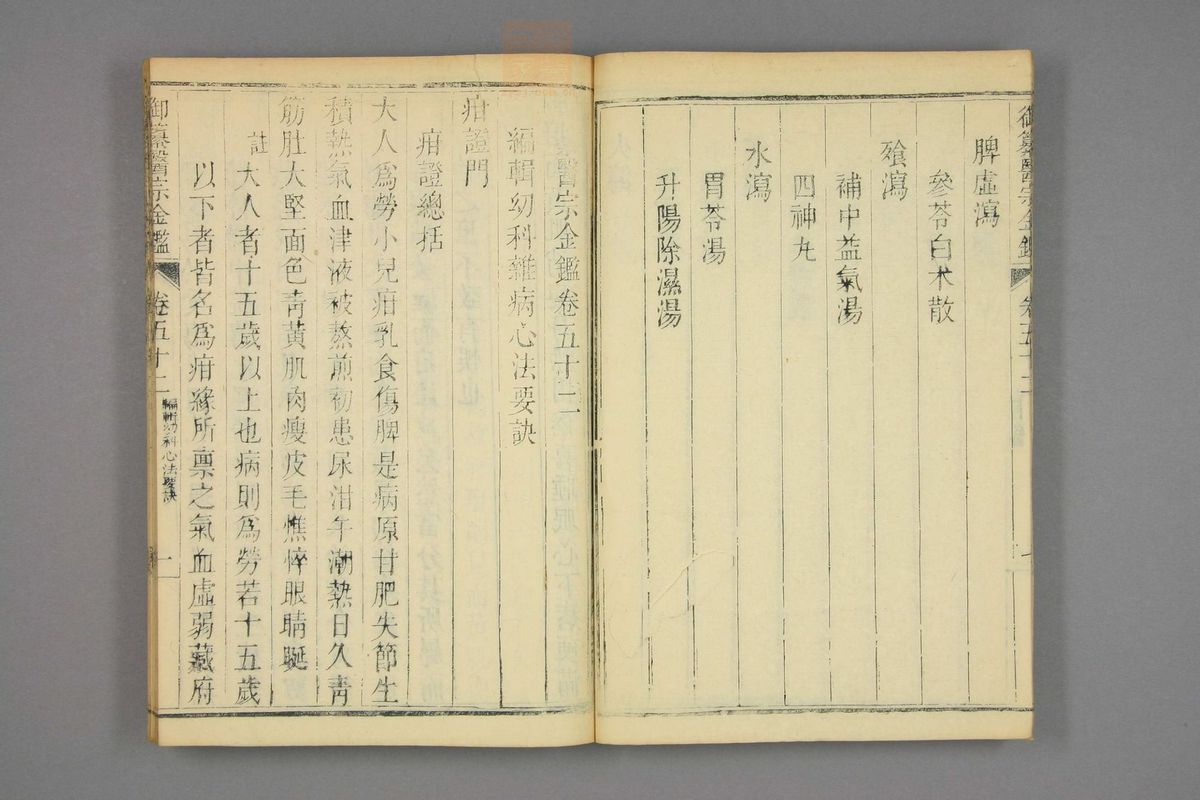 御纂醫宗金鑑
卷五十二
脾虛瀉
參苓白朮散
飱瀉
補中益氣湯
四神丸
水瀉
胃苓湯
升陽除濕湯
醫宗金鑑卷五十二
編輯幼科雜病心法要訣
疳證門
疳證總括
大人爲勞小兒疳乳食傷脾是病原甘肥失節生
積熱氣血津液被熬煎初患尿泔午潮熱日久靑
筋肚大堅面色靑黃肌肉瘦皮毛憔悴眼睛𥆧
註大人者十五歲以上也病則爲勞若十五歲
以下者皆名爲疳緣所禀之氣血虛弱藏府
御纂醫宗金鑑
卷五十二
編輯幼科心法要訣
一